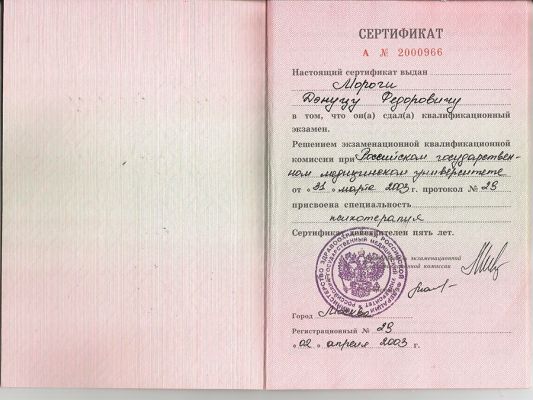 СЕРТИФИКАТ
А № 2000966
Настоящий сертификат выдан
Мороги
Дэнуцу Федоровичу
в том, что он(а) сдал(а) квалификационный
экзамен.
Решением экзаменационной квалификационной
комиссии при Российском государствен-
ном медицинском университете
от « 31 » марта 2003 г. протокол № 29
присвоена специальность
психотерапия
Сертификат действителен пять лет.
экзаменационной
комиссии
Город Москва
Регистрационный № 29
« 02 » апреля 2003 г.